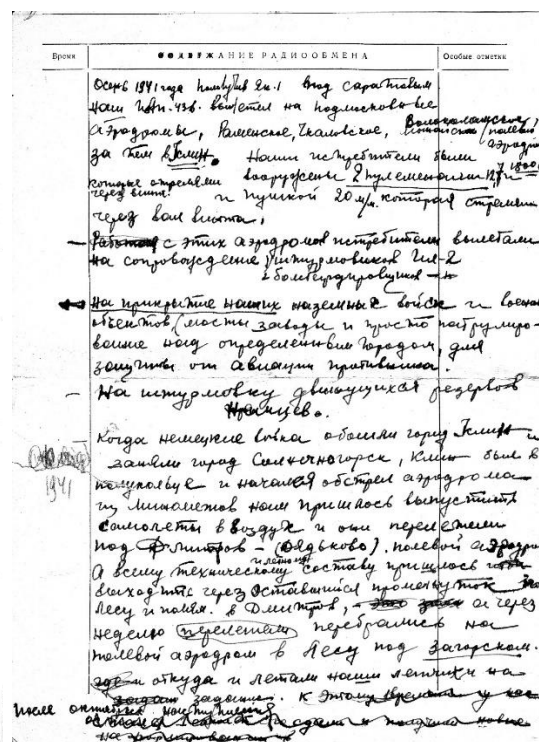 Время СОДЕРЖАНИЕ РАДИООБМЕНА Особые отметки
Осень 1941 года получив Як-1 под Саратовым
наш ИАП-436. вылетел на подмосковные
аэродромы, Раменское, Чкаловское, Волоколамское, (полевой аэродром)
за тем в Клин. Наши истребители были
вооружены 2 пулеметами
которые стреляли через винт.
и пушкой 20 м/м. которая стреляла
через вал винта.
— Работая с этих аэродромов истребители вылетали
на сопровождение штурмовиков Ил-2
и бомбардировщиков
на прикрытие наших наземных войск и военных
объектов (мосты заводы и просто патрулиро-
вание над определенным городом, для
защиты от авиации противника.
— На штурмовку движущихся резервов
Немцев.
Когда немецкие войска обошли город Клин и
заняли город Солнечногорск, Клин был в
полукольце и начался обстрел аэродрома
из минометов нам пришлось выпустить
самолеты в воздух и они перелетели
под Дмитров – (Дядьково). полевой аэродром
А всему техническому и летному составу пришлось
выходить через оставшийся промежуток
лесу и полям. в Дмитров, а через
неделю перелетели перебрались на
полевой аэродром в лесу под Загорском.
где и откуда и летали наши летчики на
задание. к этому времени у нас
1941